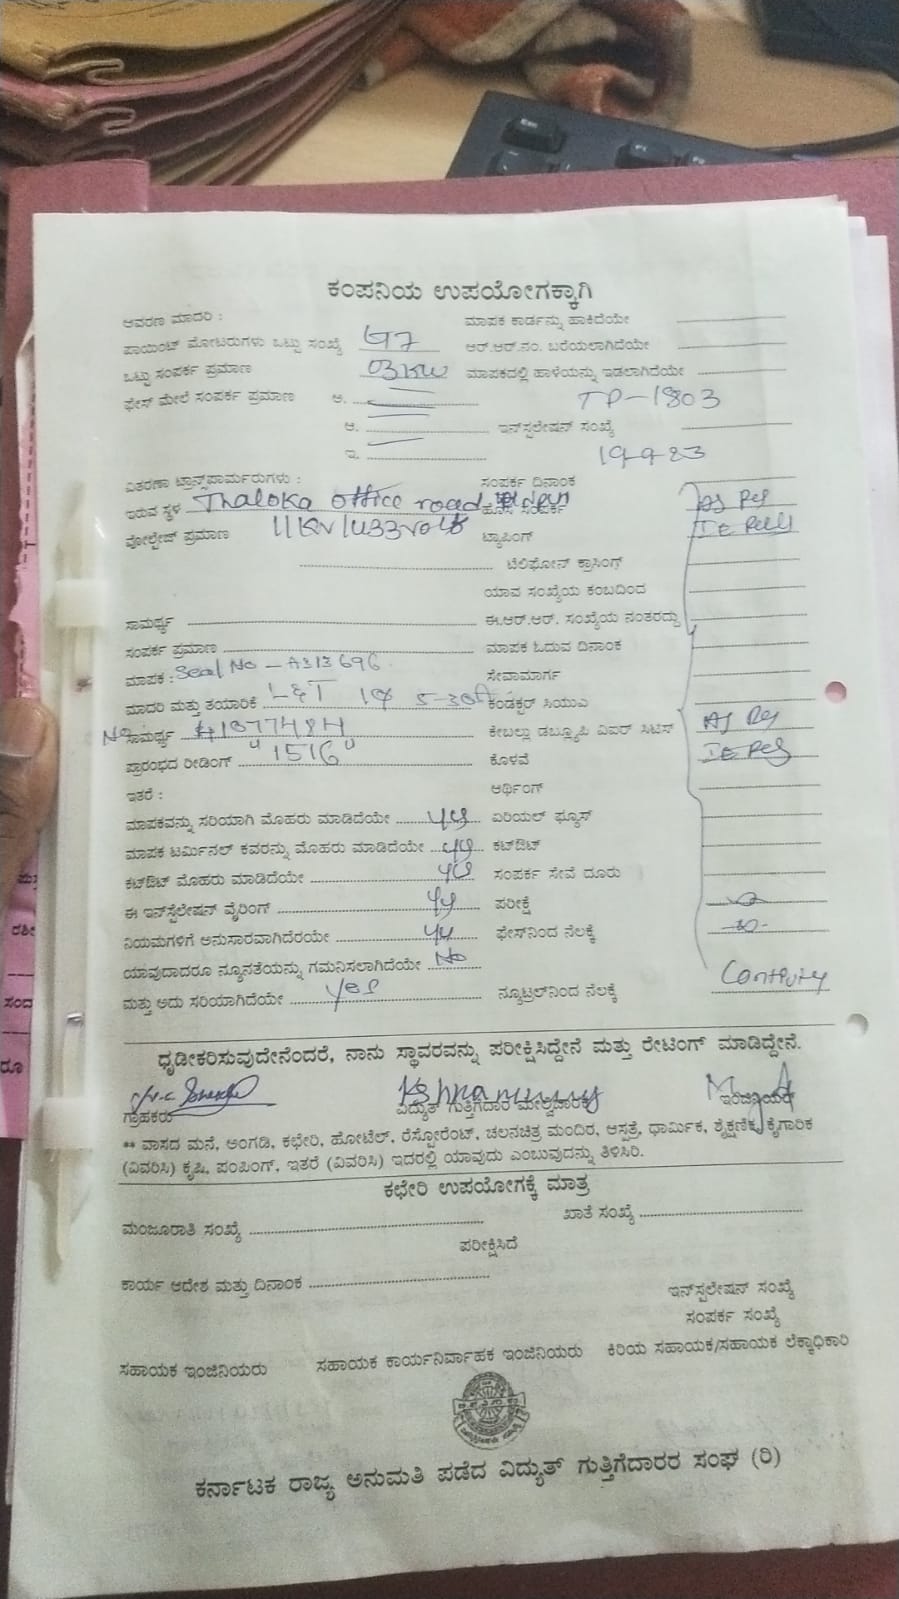 ಕಂಪನಿಯ ಉಪಯೋಗಕ್ಕಾಗಿ
ಆವರಣ ಮಾದರಿ : ಮಾಪಕ ಕಾರ್ಡನ್ನು ಹಾಕಿದೆಯೇ
ಪಾಯಿಂಟ್ ಮೋಟರುಗಳು ಒಟ್ಟು ಸಂಖ್ಯೆ ಆರ್.ಆರ್.ನಂ. ಬರೆಯಲಾಗಿದೆಯೇ
ಒಟ್ಟು ಸಂಪರ್ಕ ಪ್ರಮಾಣ 03KW ಮಾಪಕದಲ್ಲಿ ಹಾಳೆಯನ್ನು ಇಡಲಾಗಿದೆಯೇ
ಫೇಸ್ ಮೇಲೆ ಸಂಪರ್ಕ ಪ್ರಮಾಣ ಅ. TP-1803
ಆ. ಇನ್‌ಸ್ಟಲೇಷನ್ ಸಂಖ್ಯೆ
ಇ. 19-9-23
ವಿತರಣಾ ಟ್ರಾನ್ಸ್‌ಫಾರ್ಮರುಗಳು : ಸಂಪರ್ಕ ದಿನಾಂಕ
ಇರುವ ಸ್ಥಳ Thaloka office road ಹೊಸ ಸಂಪರ್ಕ
ವೋಲ್ಟೇಜ್ ಪ್ರಮಾಣ 11KV/433volt ಟ್ಯಾಪಿಂಗ್
ಟೆಲಿಫೋನ್ ಕ್ರಾಸಿಂಗ್
ಯಾವ ಸಂಖ್ಯೆಯ ಕಂಬದಿಂದ
ಸಾಮರ್ಥ್ಯ ಈ.ಆರ್.ಆರ್. ಸಂಖ್ಯೆಯ ನಂತರದ್ದು
ಸಂಪರ್ಕ ಪ್ರಮಾಣ ಮಾಪಕ ಓದುವ ದಿನಾಂಕ
ಮಾಪಕ : Seal No - A313696 ಸೇವಾಮಾರ್ಗ
ಮಾದರಿ ಮತ್ತು ತಯಾರಿಕೆ L&T 1Φ 5-30A ಕಂಡಕ್ಟರ್ ಸಿಯುಎ
No ಸಾಮರ್ಥ್ಯ ಕೇಬಲ್ಲು ಡಬ್ಲ್ಯೂಪಿ ವಿಐಆರ್ ಸಿಟಿಸ್
ಪ್ರಾರಂಭದ ರೀಡಿಂಗ್ "1516" ಕೊಳವೆ
ಇತರೆ : ಆರ್ಥಿಂಗ್
ಮಾಪಕವನ್ನು ಸರಿಯಾಗಿ ಮೊಹರು ಮಾಡಿದೆಯೇ ಏರಿಯಲ್ ಫ್ಯೂಸ್
ಮಾಪಕ ಟರ್ಮಿನಲ್ ಕವರನ್ನು ಮೊಹರು ಮಾಡಿದೆಯೇ ಕಟ್‌ಔಟ್
ಕಟ್‌ಔಟ್ ಮೊಹರು ಮಾಡಿದೆಯೇ ಸಂಪರ್ಕ ಸೇವೆ ದೂರು
ಈ ಇನ್‌ಸ್ಟೆಲೇಷನ್ ವೈರಿಂಗ್ ಪರೀಕ್ಷೆ
ನಿಯಮಗಳಿಗೆ ಅನುಸಾರವಾಗಿದೆರಯೇ ಫೇಸ್‌ನಿಂದ ನೆಲಕ್ಕೆ
ಯಾವುದಾದರೂ ನ್ಯೂನತೆಯನ್ನು ಗಮನಿಸಲಾಗಿದೆಯೇ No
ಮತ್ತು ಅದು ಸರಿಯಾಗಿದೆಯೇ yes ನ್ಯೂಟ್ರಲ್‌ನಿಂದ ನೆಲಕ್ಕೆ
ಧೃಡೀಕರಿಸುವುದೇನೆಂದರೆ, ನಾನು ಸ್ಥಾವರವನ್ನು ಪರೀಕ್ಷಿಸಿದ್ದೇನೆ ಮತ್ತು ರೇಟಿಂಗ್ ಮಾಡಿದ್ದೇನೆ.
ಗ್ರಾಹಕರು ವಿದ್ಯುತ್ ಗುತ್ತಿಗೆದಾರ ಮೇಲ್ವಿಚಾರಕ ಇಂಜಿನಿಯರ್
** ವಾಸದ ಮನೆ, ಅಂಗಡಿ, ಕಛೇರಿ, ಹೋಟೆಲ್, ರೆಸ್ಟೋರೆಂಟ್, ಚಲನಚಿತ್ರ ಮಂದಿರ, ಆಸ್ಪತ್ರೆ, ಧಾರ್ಮಿಕ, ಶೈಕ್ಷಣಿಕ, ಕೈಗಾರಿಕ
(ವಿವರಿಸಿ) ಕೃಷಿ, ಪಂಪಿಂಗ್, ಇತರೆ (ವಿವರಿಸಿ) ಇದರಲ್ಲಿ ಯಾವುದು ಎಂಬುವುದನ್ನು ತಿಳಿಸಿರಿ.
ಕಛೇರಿ ಉಪಯೋಗಕ್ಕೆ ಮಾತ್ರ
ಮಂಜೂರಾತಿ ಸಂಖ್ಯೆ ಖಾತೆ ಸಂಖ್ಯೆ
ಪರೀಕ್ಷಿಸಿದೆ
ಕಾರ್ಯ ಆದೇಶ ಮತ್ತು ದಿನಾಂಕ
ಇನ್‌ಸ್ಟಲೇಷನ್ ಸಂಖ್ಯೆ
ಸಂಪರ್ಕ ಸಂಖ್ಯೆ
ಸಹಾಯಕ ಇಂಜಿನಿಯರು ಸಹಾಯಕ ಕಾರ್ಯನಿರ್ವಾಹಕ ಇಂಜಿನಿಯರು ಕಿರಿಯ ಸಹಾಯಕ/ಸಹಾಯಕ ಲೆಕ್ಕಾಧಿಕಾರಿ
ಕರ್ನಾಟಕ ರಾಜ್ಯ ಅನುಮತಿ ಪಡೆದ ವಿದ್ಯುತ್ ಗುತ್ತಿಗೆದಾರರ ಸಂಘ (ರಿ)